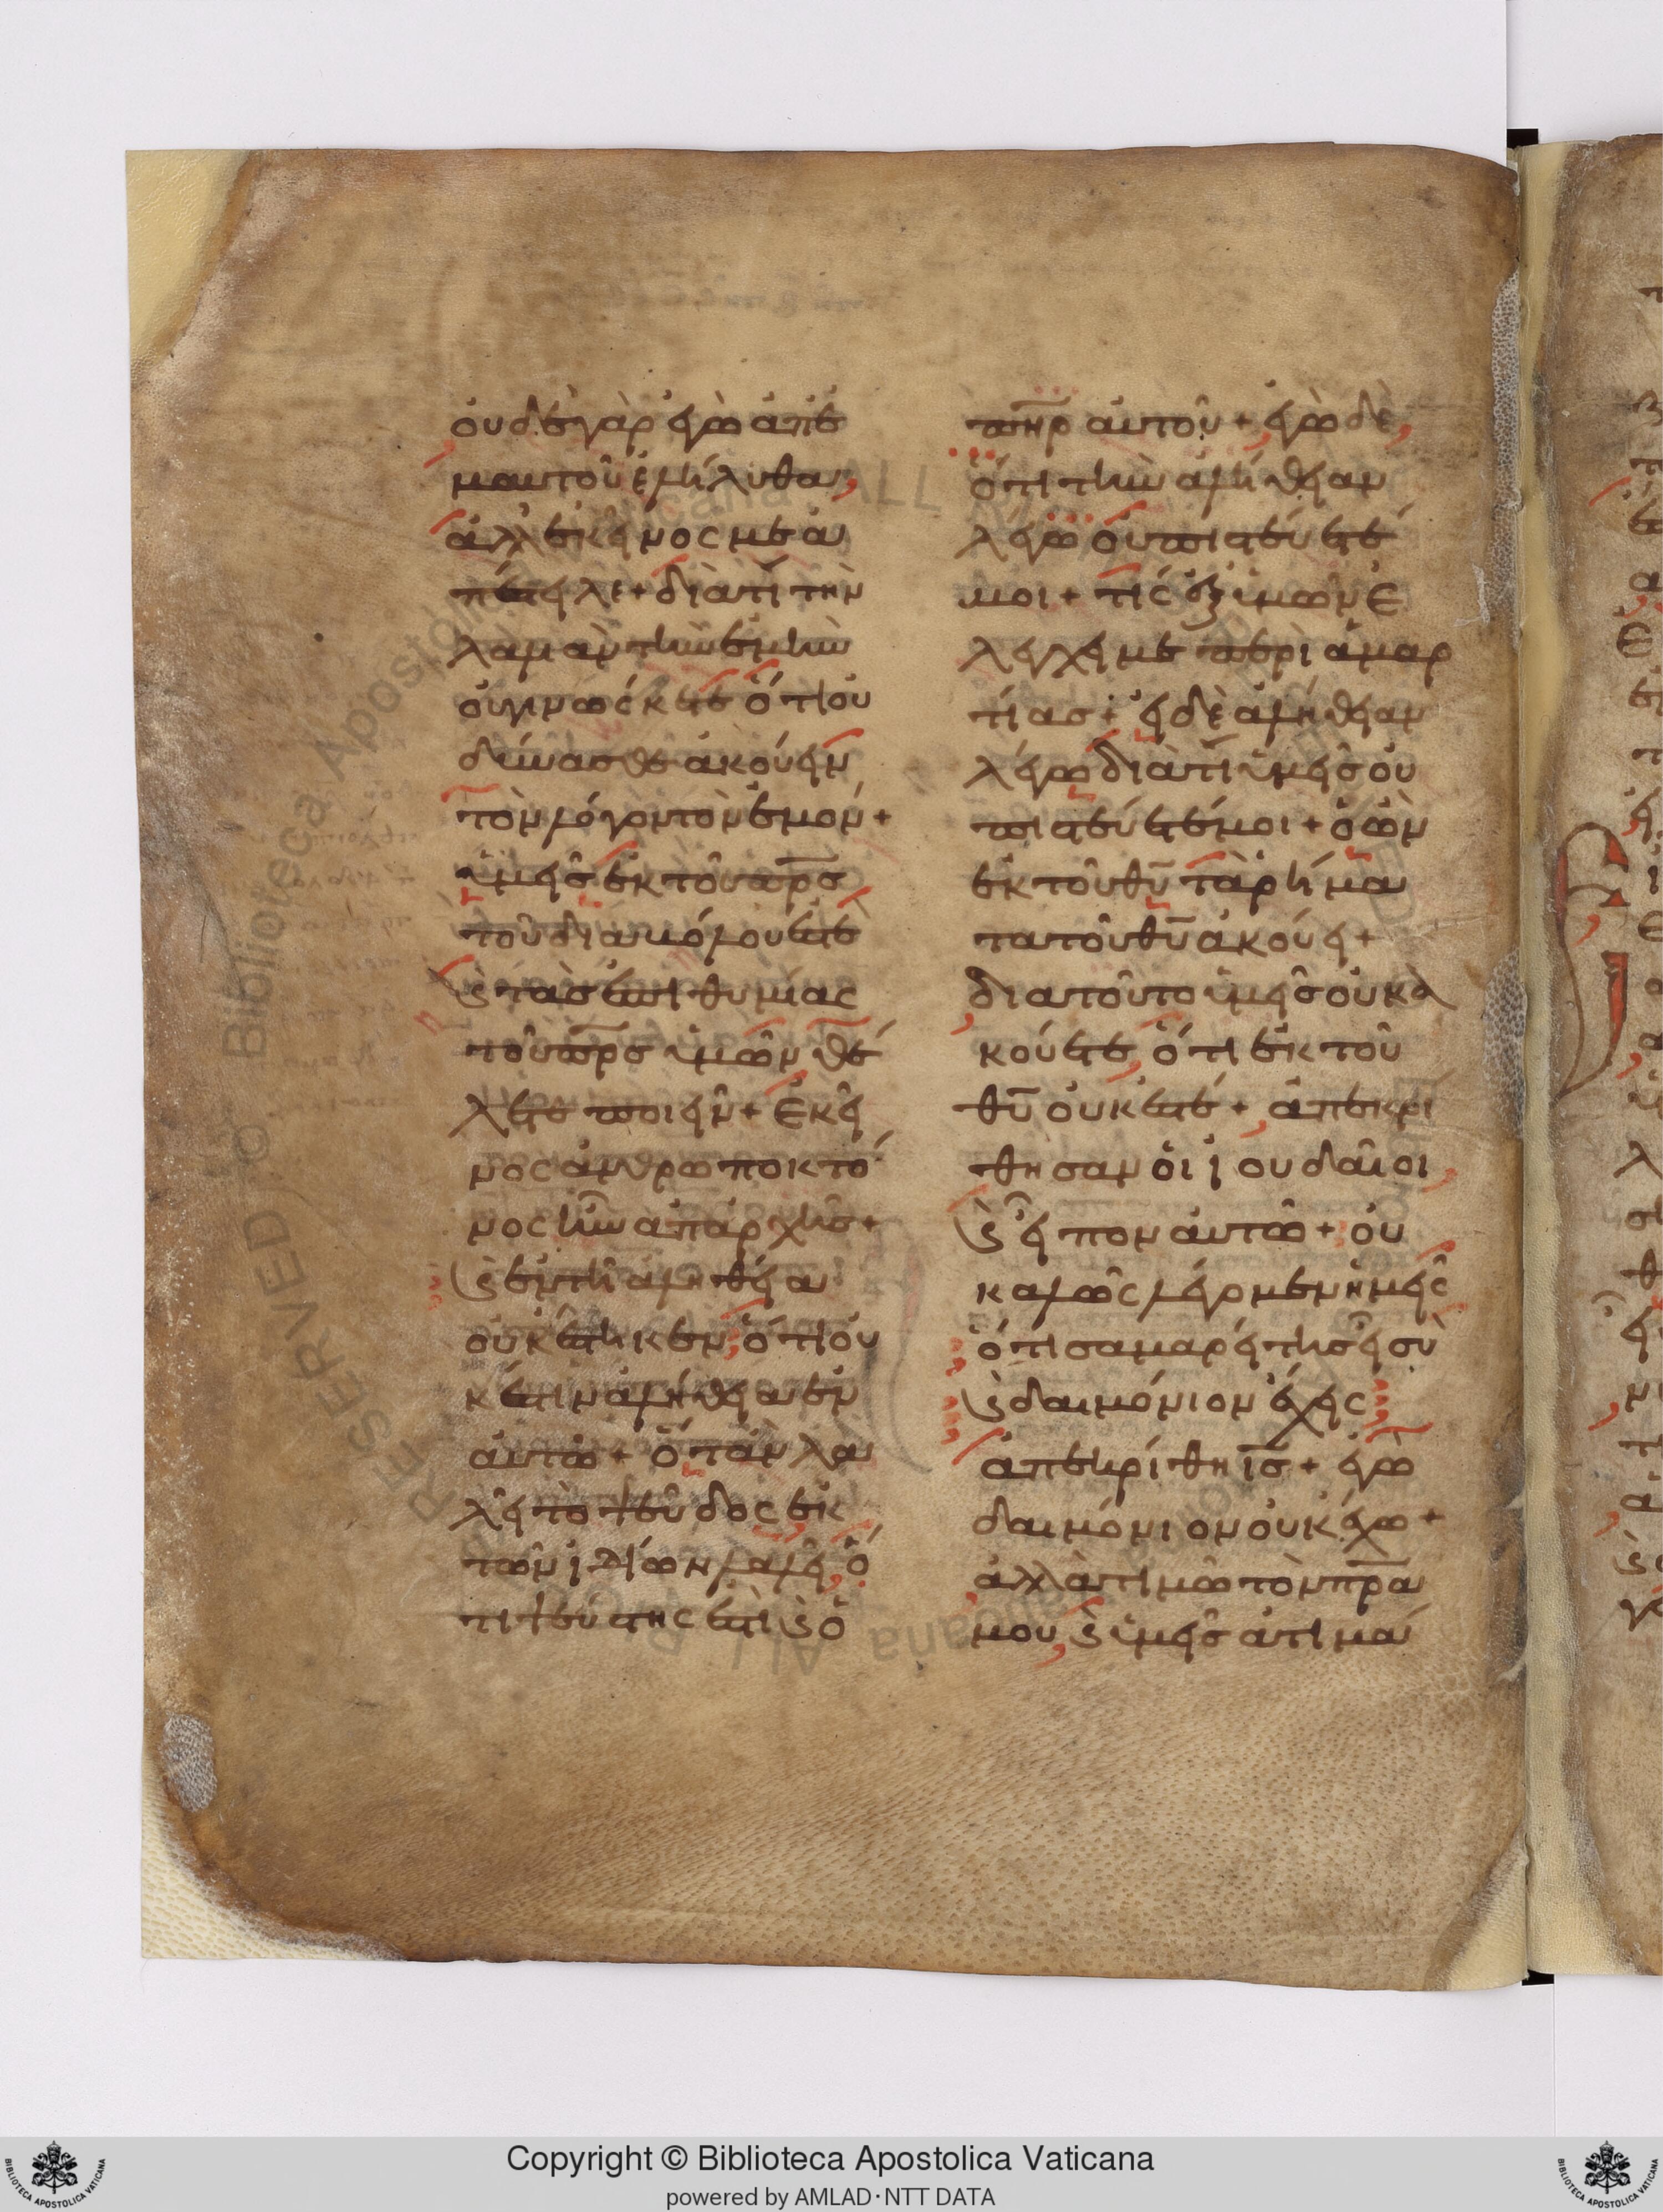 ουδε γὰρ ἐγὼ ἀπ' ἐ
μαυτοῦ ἐλήλυθα,
ἀλλ' ἐκεῖνος με ἀ
πέστειλε + διὰτί τὴν
λαλιὰν τὴν ἐμὴν
οὐ γινώσκετε ὅτι οὐ
δύνασθε ἀκούειν
τὸν λόγον τὸν ἐμόν +
ὑμεῖς ἐκ τοῦ πρσ
τοῦ διαβόλου ἐστέ
ϛ τὰσ ἐπιθυμίας
τοῦ πρσ ὑμῶν θέ
λετε ποιεῖν + Ἐκεῖ
νος ἀνθρωποκτό
νος ἦν ἀπ' ἀρχῆσ +
ϛ ἐν τῆ ἀληθεία
οὐκ ἔστηκεν, ὅτι οὐ
κ ἔστιν ἀλήθεια ἐν
αὐτῶ + ὅταν λα
λεῖ τὸ ψεῦδος ἐκ
τῶν ἰδίων λαλεῖ, ὅ
τι ψεύστης ἐστὶ ϛ ὁ
πηρ αὐτοῦ + ἐγὼ δὲ,
ὅτι τὴν ἀλήθειαν
λέγω οὐ πιστεύετέ
μοι + τίς ἐξ ὑμῶν ἐ
λέγχει με περὶ ἁμαρ
τίασ + εἰ δὲ ἀλήθειαν
λέγω διὰτί ὑμεῖσ οὐ
πιστεύετέ μοι + ὁ ὢν
ἐκ τοῦ θυ τὰ ρήμα
τα τοῦ θυ ἀκούει +
διατοῦτο ὑμεῖσ οὐκ ἀ
κούετε, ὅτι ἐκ τοῦ
θυ οὐκ ἐστέ +, ἀπεκρί
θησαν οἱ ἰουδαῖοι,
ϛ εἶπον αὐτῶ + οὐ
καλῶς λέγομεν ἡμεῖς
ὅτι σαμαρείτησ εἶ σὺ
ϛ δαιμόνιον ἔχεις
ἀπεκρίθη ισ + ἐγὼ
δαιμόνιον οὐκ ἔχω +
ἀλλὰ τιμῶ τὸν πρα
μου, ϛ ὑμεῖσ ἀτιμά
Copyright © Biblioteca Apostolica Vaticana
powered by AMLAD·NTT DATA